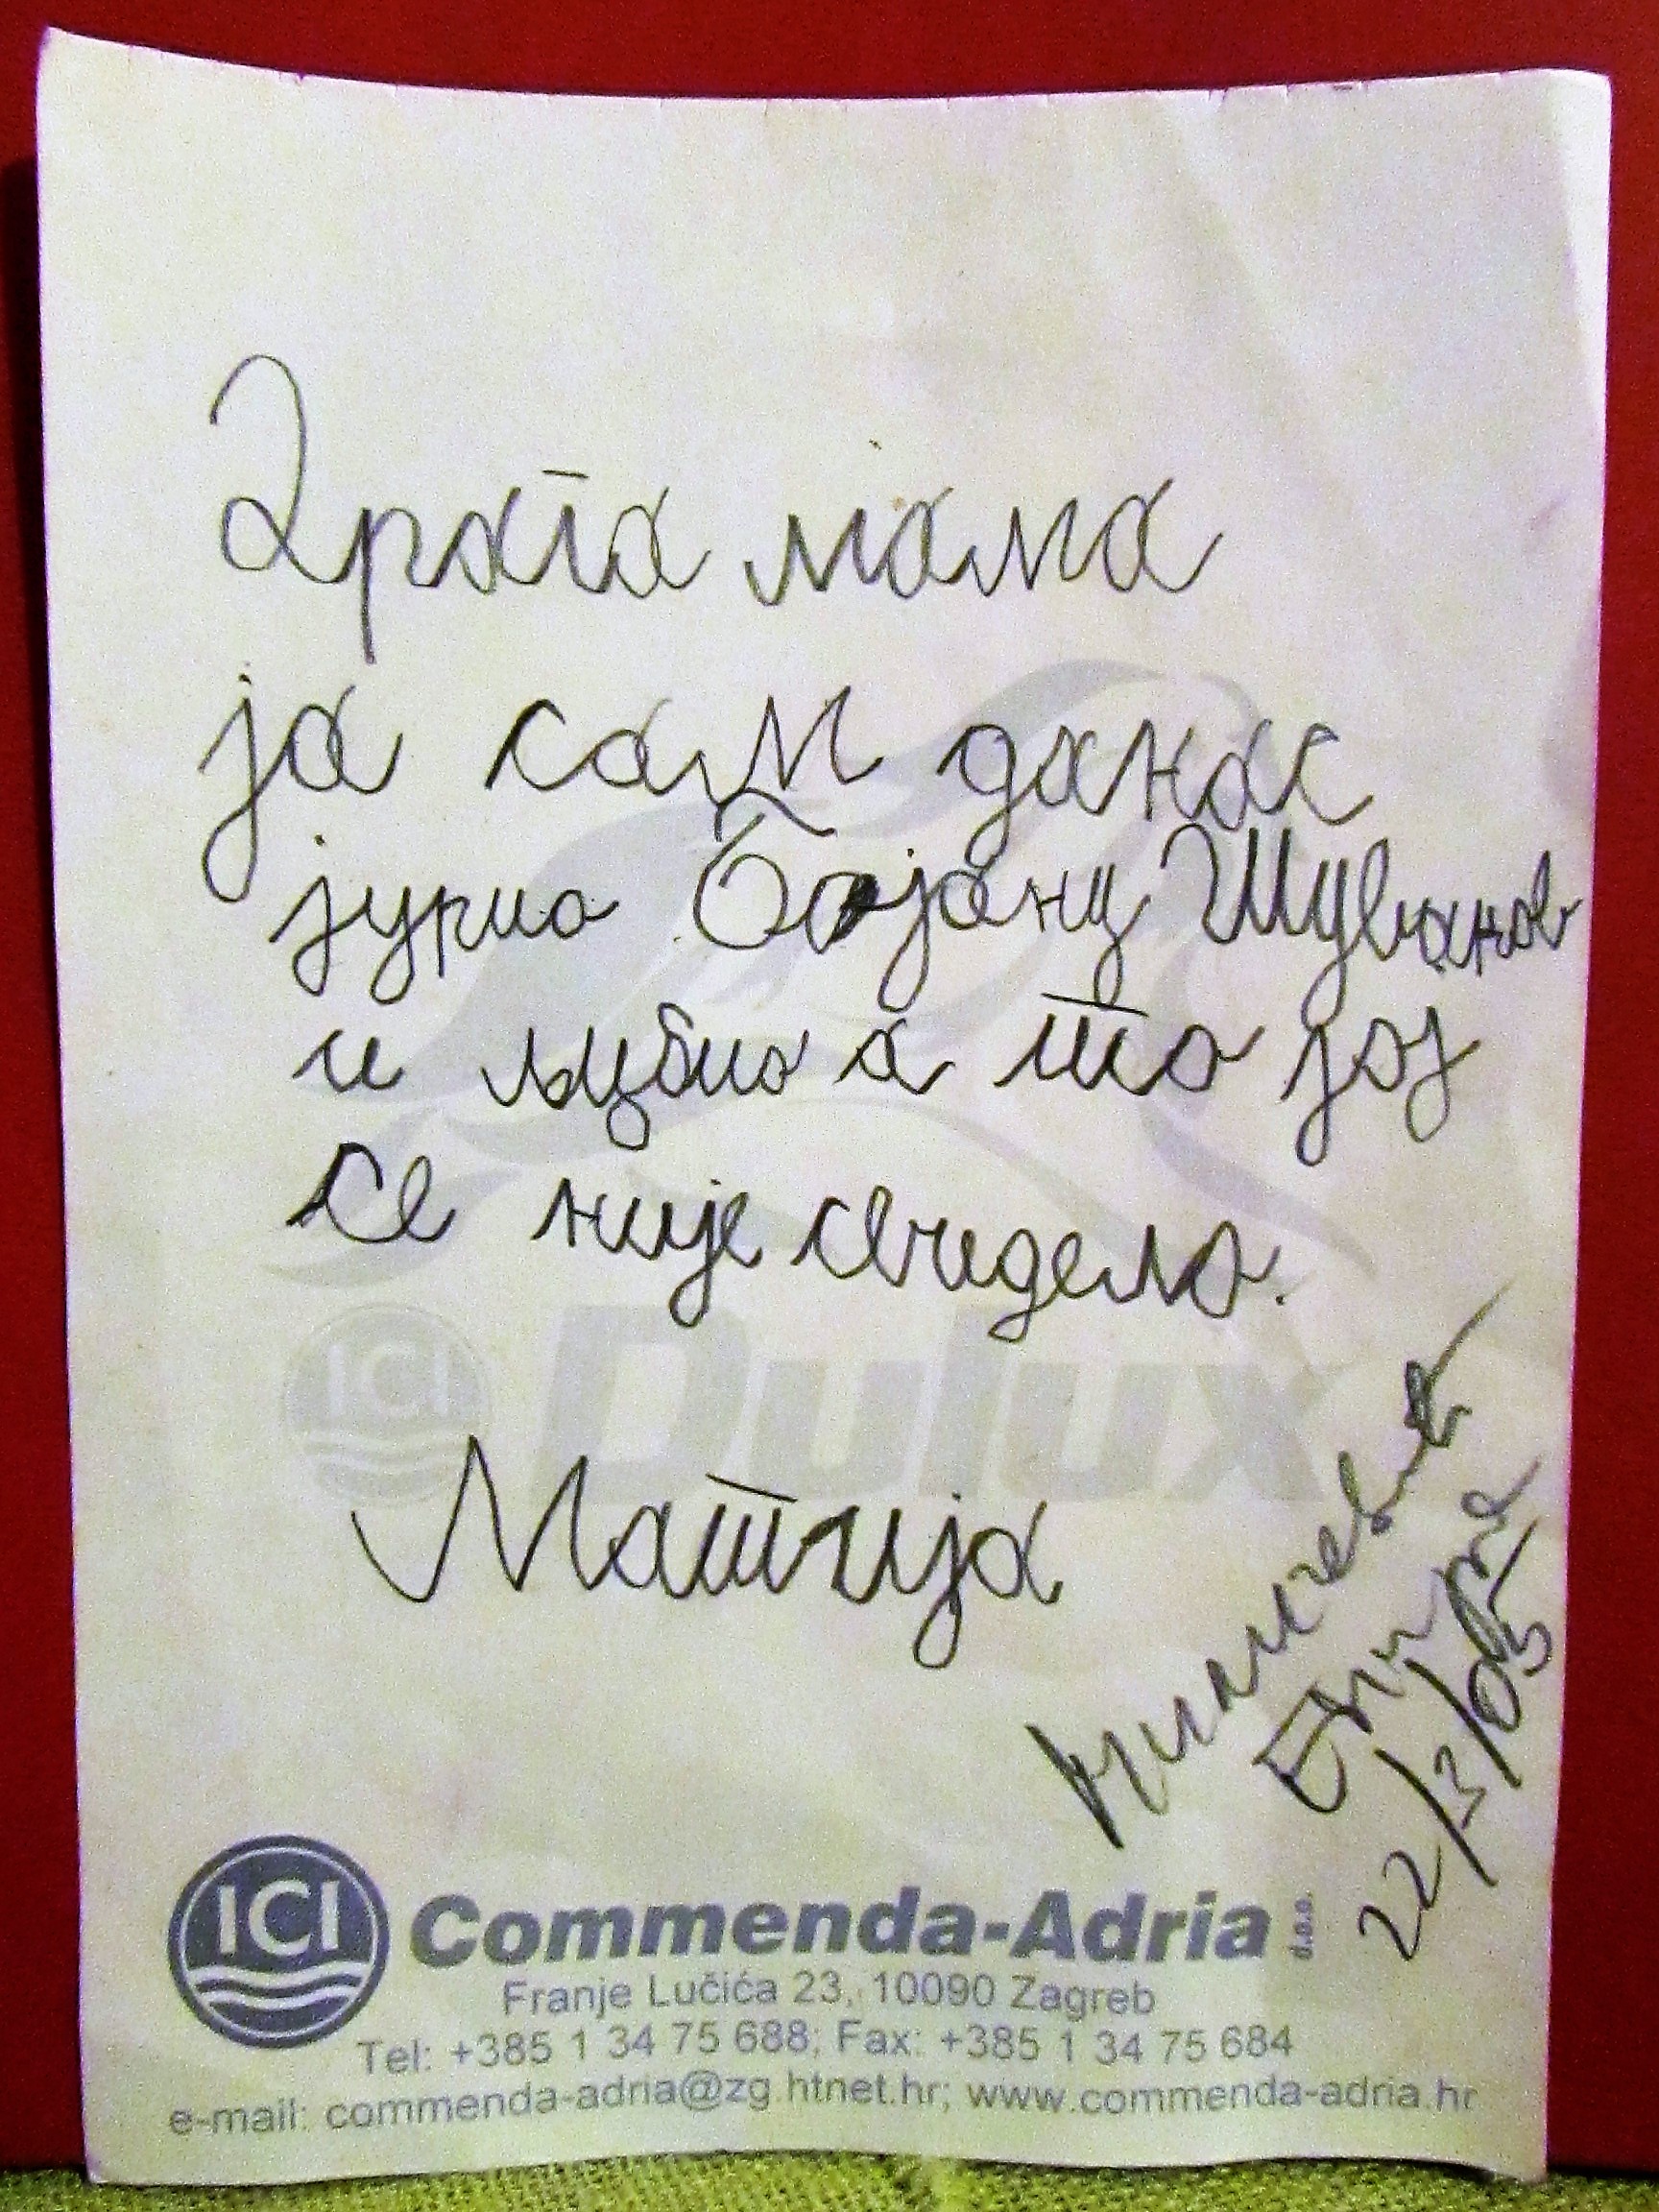 Драга мама
ја сам данас
јурио Бојану Шуванов
и љубио а то јој
се није свидело.
ICI Dulux
Матија
22/3/05
ICI Commenda-Adria d.o.o.
Franje Lučića 23, 10090 Zagreb
Tel: +385 1 34 75 688; Fax: +385 1 34 75 684
e-mail: commenda-adria@zg.htnet.hr; www.commenda-adria.hr